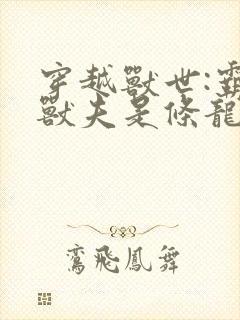 穿越獸世:霸
獸夫是條龍
鸞飛鳳舞